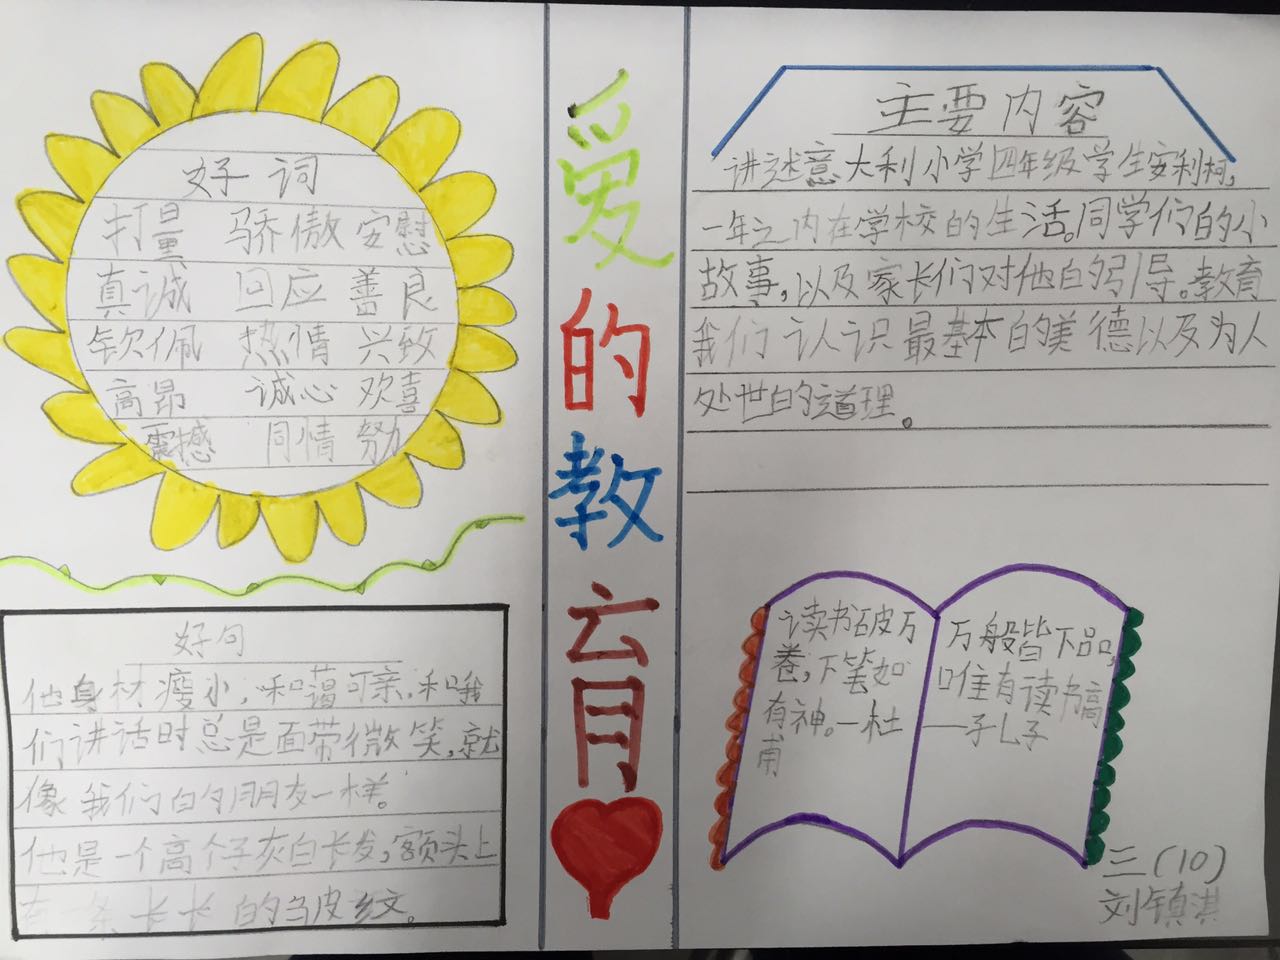 好词
打量 骄傲 安慰
真诚 回应 善良
钦佩 热情 兴致
高昂 诚心 欢喜
震撼 同情 努力
好句
他身材瘦小，和蔼可亲，和我
们讲话时总是面带微笑，就
像我们的朋友一样。
他是一个高个子灰白长发，额头上
有一条长长的皱纹。
爱的教育
主要内容
讲述意大利小学四年级学生安利柯，
一年之内在学校的生活。同学们的小
故事，以及家长们对他的引导。教育
我们认识最基本的美德以及为人
处世的道理。
读书破万
卷，下笔如
有神。一杜
甫
万般皆下品，
唯有读书高
一孔子
三（10）
刘镇淇